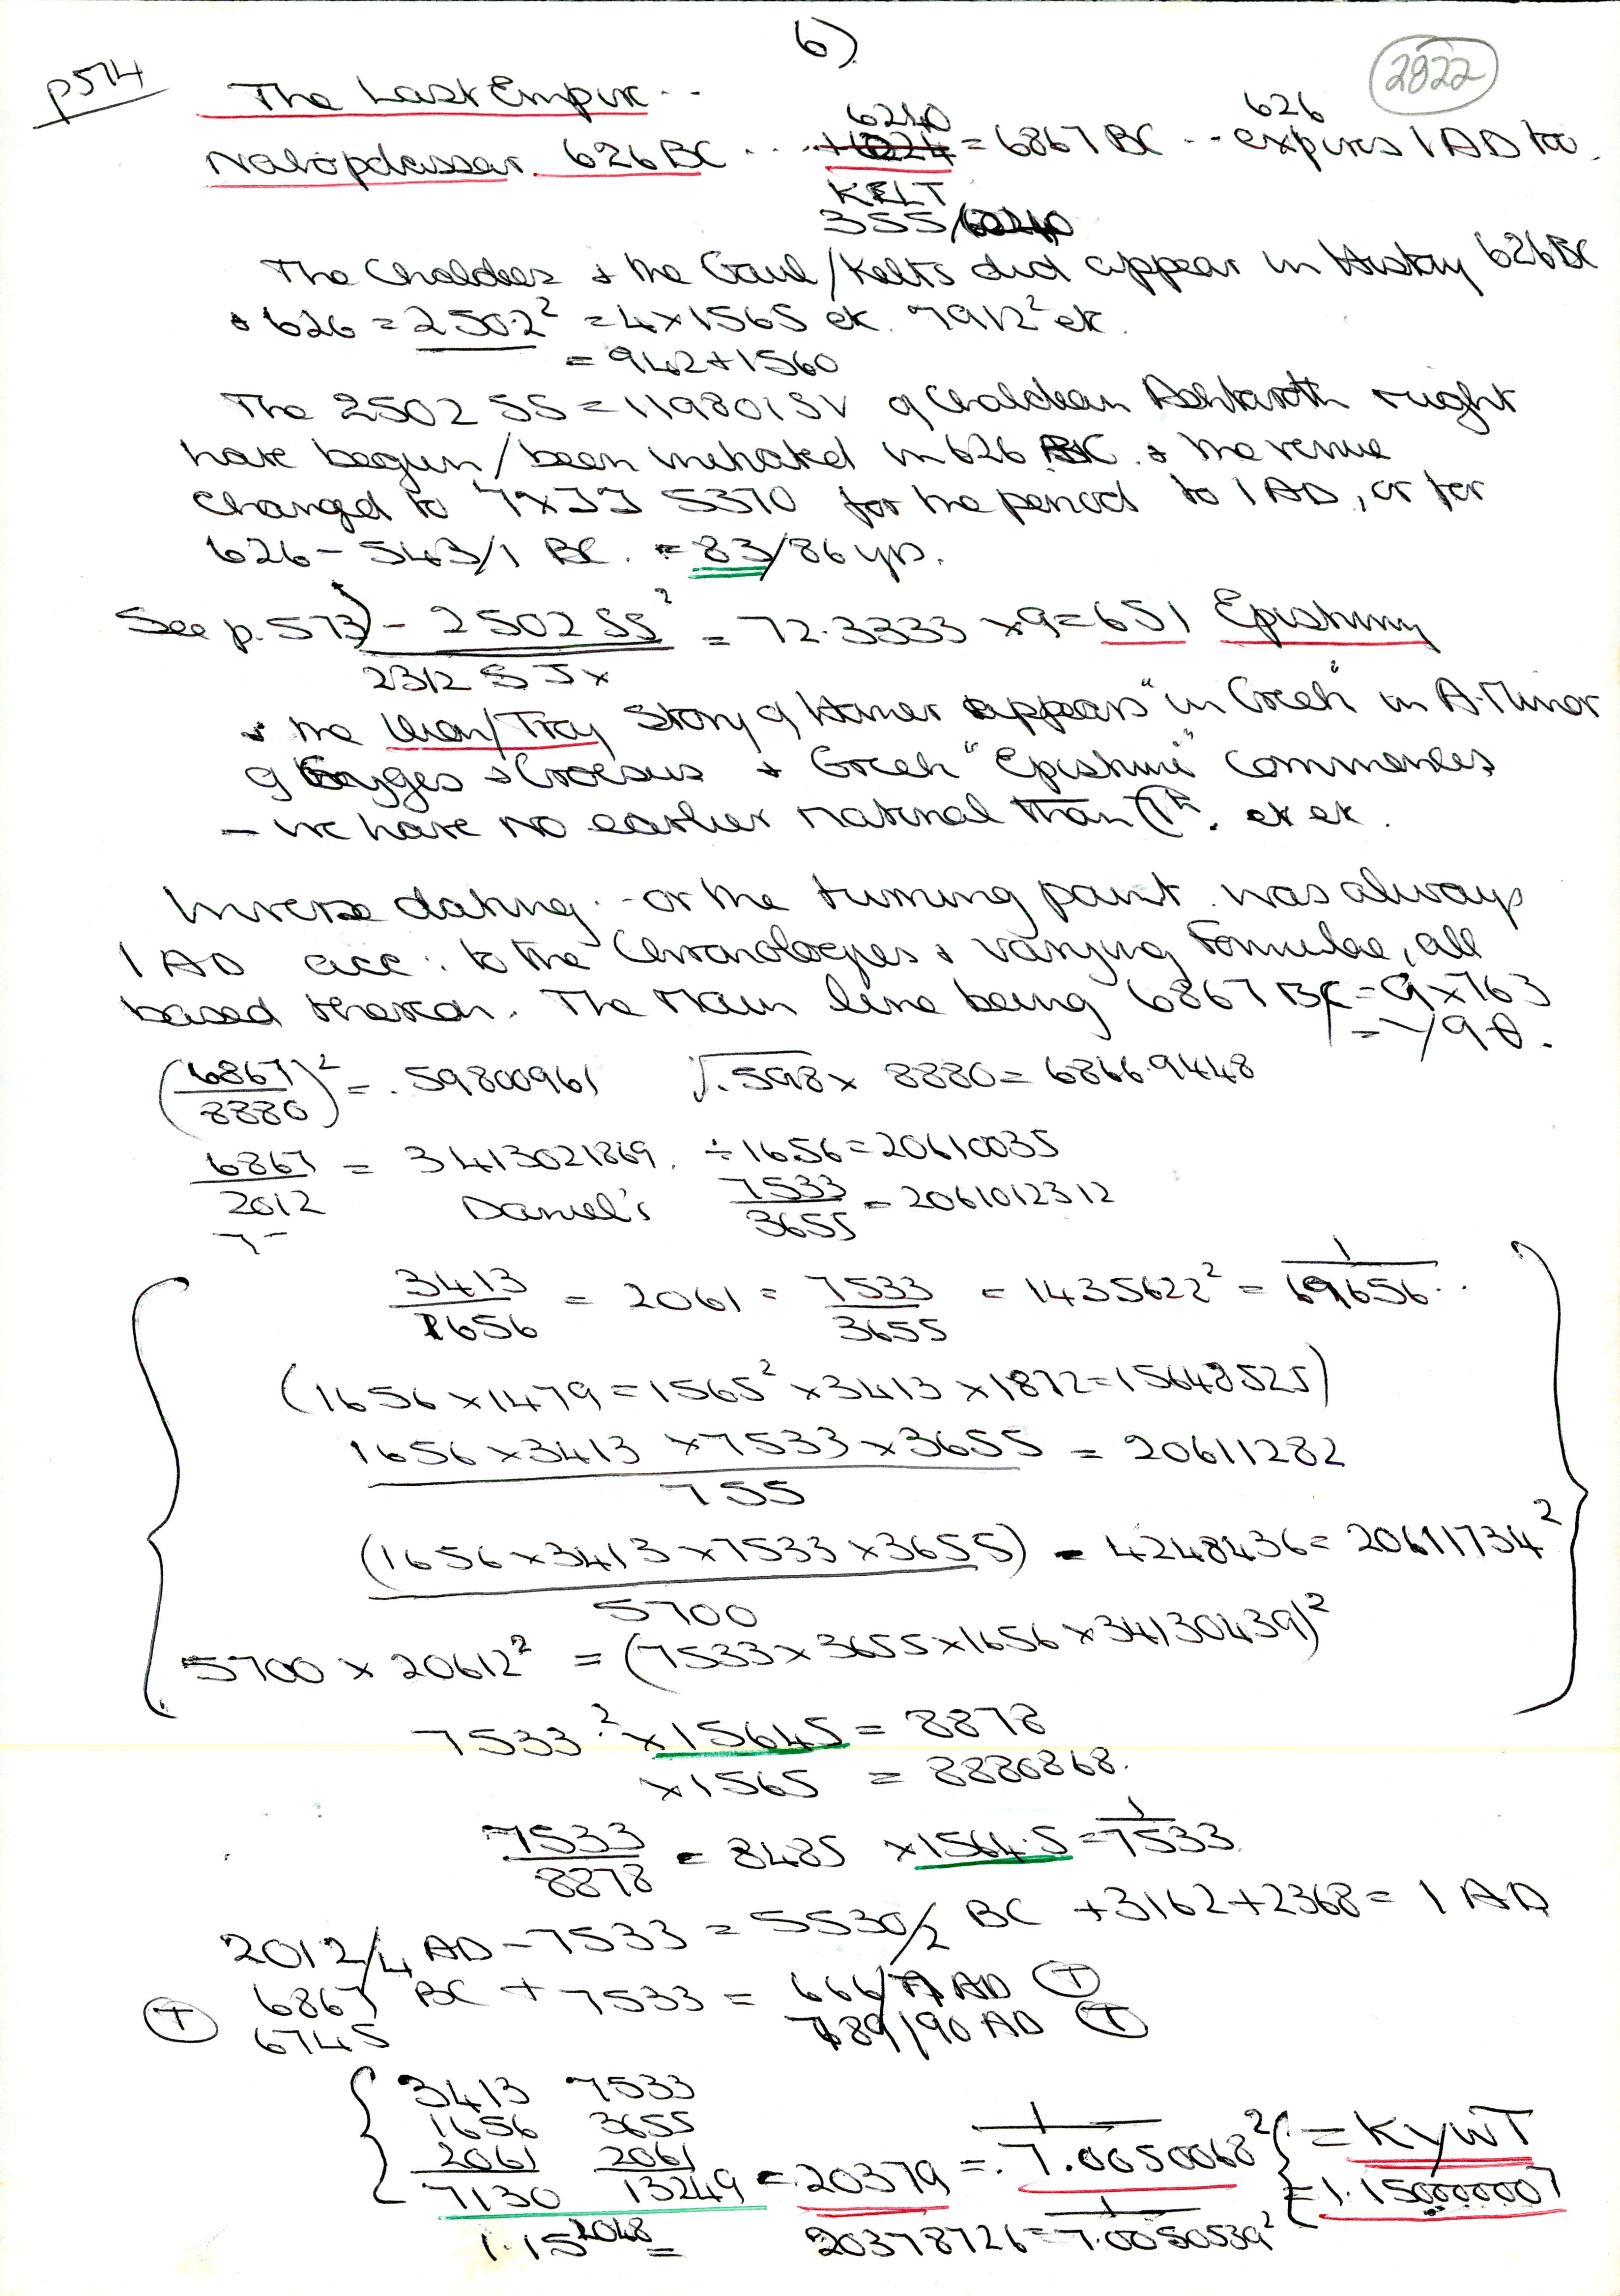 6)
2822
p574
The Last Empire ..
Nabopolassar. 626 BC ... 6240 = 6867 BC .. expires 1 AD too.
626
KELT
355/
The Chaldees & the Gaul/Kelts did appear in History 626 BC
& 626 = 2502² = 4×1565 ek. 7912² ek.
= 942+1560
The 2502 SS = 1198015V of Chaldean Ashtaroth might
have begun/been initiated in 626 BC. & the revenue
changed to 7×JJ 5370 for the period to 1 AD, or for
626 - 543/1 BC. = 83/86 yrs.
See p. 573) - 2502 SS² = 72.3333 ×9 = 651
2312 S J x
& the Story of Homer appears "in Greek" in A. Minor
of Gyges & Croesus & Greek commences
- we have no earlier material than et ek.
Inverse dating .. or the turning point. was always
1 AD acc: to the Chronologies & varying Formulae, all
based thereon. The Main line being 6867 BC = 9×763
= 7/9 θ.
(6867/8880)² = .59800961 √.598 × 8880 = 6866.9448
6867/2012 = 3413021869. ÷ 1656 = 20610035
Daniel's 7533/3655 = 2061012312
3413/1656 = 2061 = 7533/3655 = 1435622² = 1/69656..
(1656×1479 = 1565² ×3413 ×1872 = 15648525)
1656×3413 ×7533×3655 = 20611282
755
(1656×3413×7533×3655) = 4248436 = 20611734²
5700
5700 × 20612² = (7533×3655×1656×34130439)²
7533.² ×15645 = 8878
×1565 = 8880868.
7533/8878 = 8485 ×1564.5 = 1/7533
2012/4 AD - 7533 = 5530/2 BC +3162+2368 = 1 AD
6867 BC + 7533 = 666/7 AD (T)
(T) 6745 789/90 AD (T)
3413 7533
1656 3655
2061 2061
7130 13249 = 20379 = 1/7.0050068² } = KYWT
1.15²⁰⁴⁸ = 20378726 = 1/7.0050539² = 1.150000007